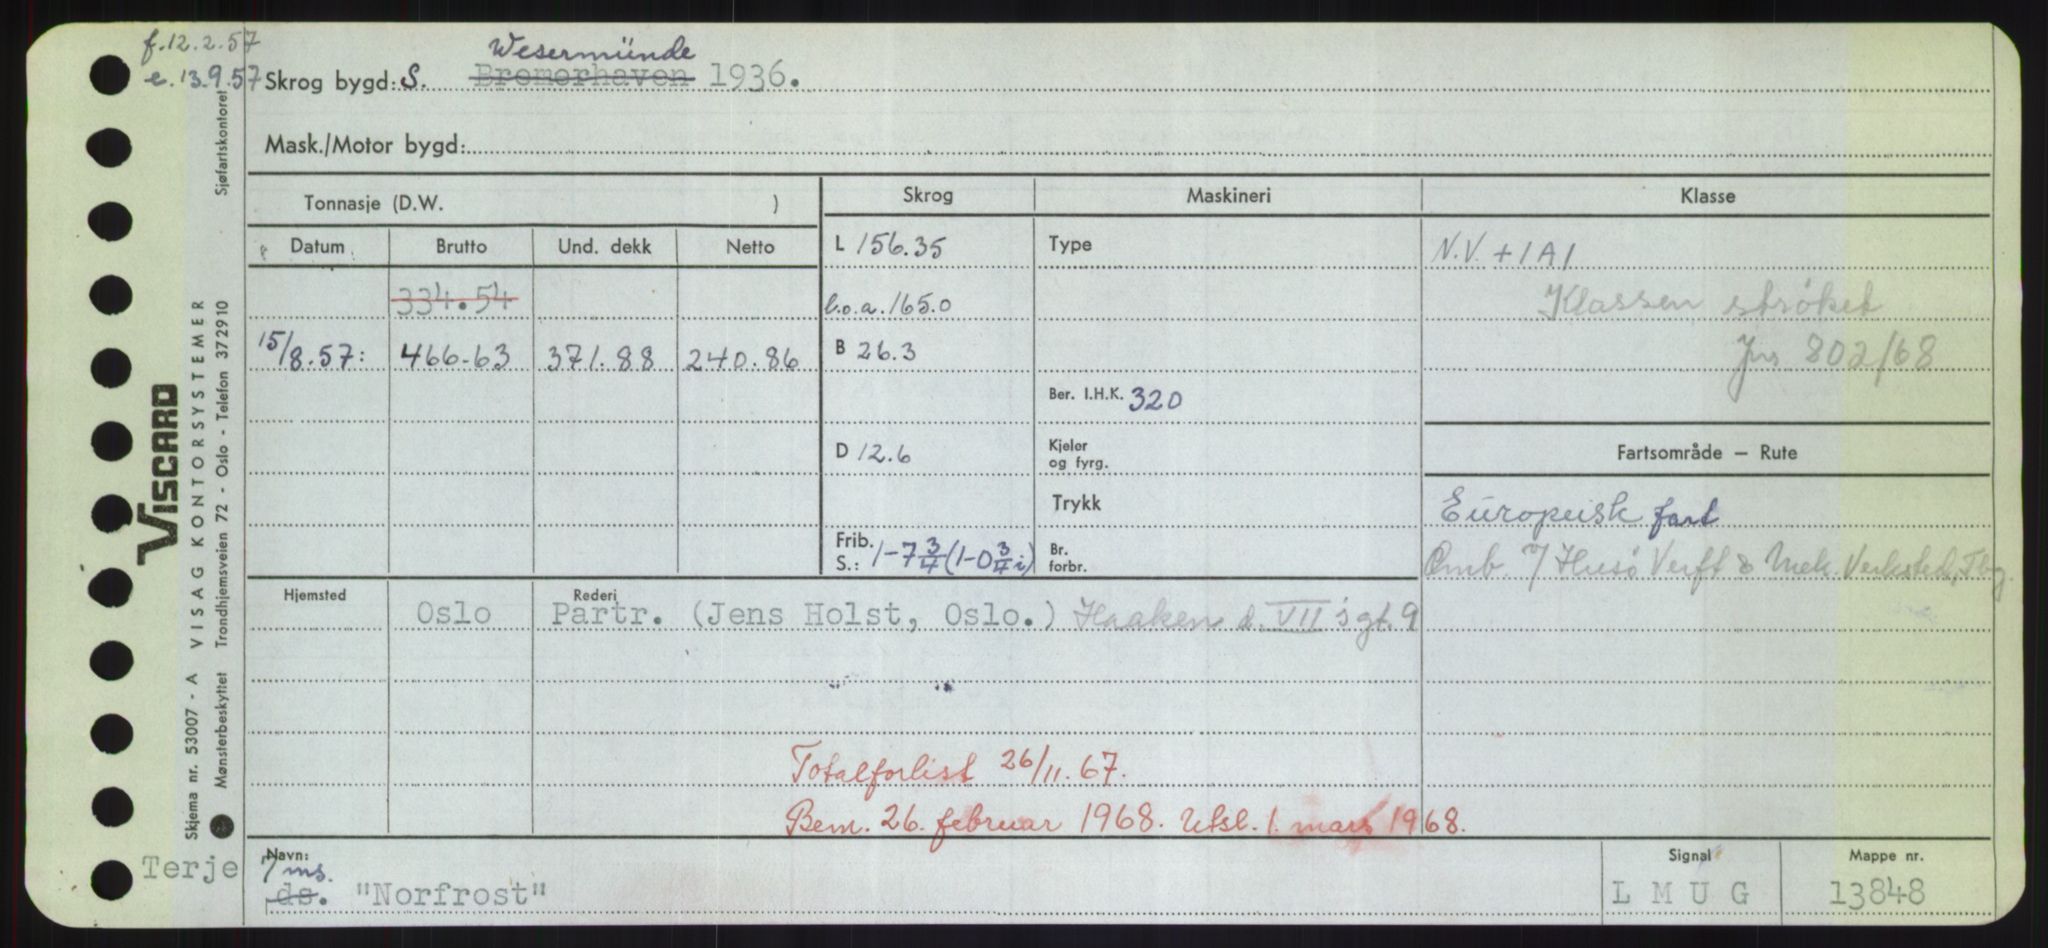 f.12.2.57
e.13.9.57
Wesermünde
Skrog bygd: S. Bremerhaven 1936.
Mask./Motor bygd:
Tonnasje (D.W. )
Skrog
Maskineri
Klasse
Datum
Brutto
Und. dekk
Netto
L 156.35
Type
N.V. + 1 A 1
334.54
l.o.a. 165.0
Klassen strøket
15/8.57: 466.63 371.88 240.86
B 26.3
Jns 802/68
Ber. I.H.K. 320
D 12.6
Kjeler
og fyrg.
Fartsområde — Rute
Trykk
Europeisk fart
Frib.
S.: 1-7 3/4 (1-0 3/4 i)
Br.
forbr.
Omb. v/ Husö Verft & Mek. Verksted, Tbg.
Hjemsted
Rederi
Oslo Partr. (Jens Holst, Oslo.) Haakon d. VII's gt. 9
Totalforlist 26/11. 67.
Bem. 26. februar 1968. Utsl. 1. mars 1968.
Navn:
Signal
Mappe nr.
Terje
ms.
ds. "Norfrost"
L M U G
13848
Sjøfartskontoret
VISCARD
VISAG KONTORSYSTEMER
Trondhjemsveien 72 - Oslo - Telefon 372910
Skjema nr. 53007 - A
Mønsterbeskyttet